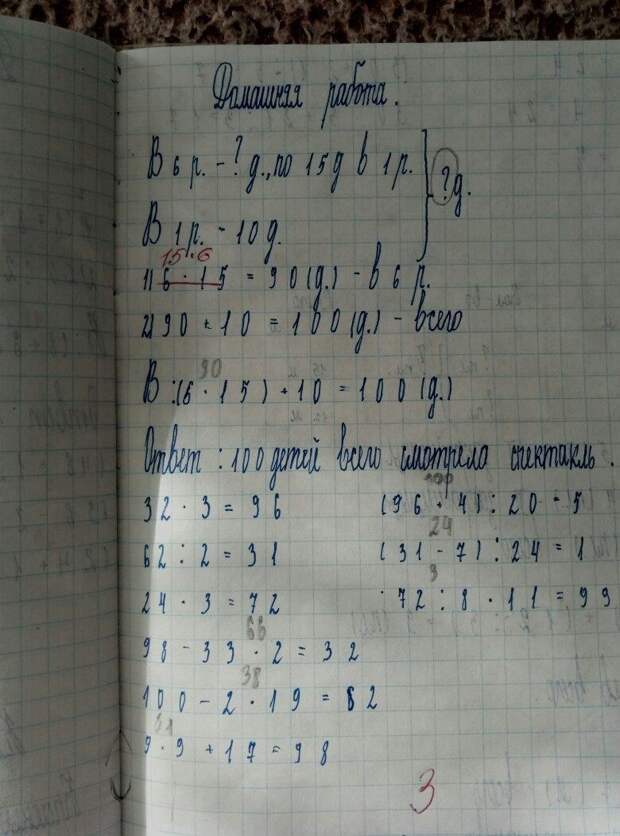 Домашняя работа.
В 6 р. - ? д., по 15 д в 1 р. } ? д.
В 1 р. - 10 д.
15 · 6
1) 6 · 15 = 90 (д.) - в 6 р.
2) 90 + 10 = 100 (д.) - всего
90
В : (6 · 15) + 10 = 100 (д.)
Ответ : 100 детей всего смотрело спектакль.
100
32 · 3 = 96 (96 + 4) : 20 = 5
24
62 : 2 = 31 (31 - 7) : 24 = 1
9
24 · 3 = 72 72 : 8 · 11 = 99
66
98 - 33 · 2 = 32
38
100 - 2 · 19 = 62
81
9 · 9 + 17 = 98
3